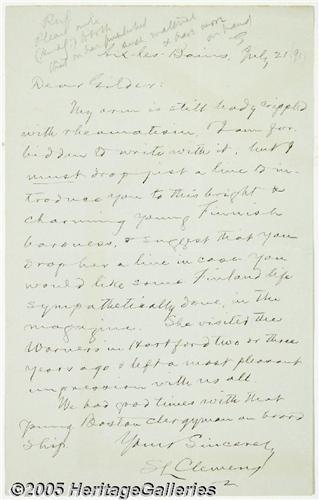 Aix-les-Bains, July 21. 91
Dear Gilder:
My arm is still badly crippled
with rheumatism, & I am for-
bidden to write with it, but I
must drop just a line to in-
troduce you to this bright &
charming young Finnish
baroness, & suggest that you
drop her a line in case you
would like some Finland life
sympathetically done, in the
magazine. She visited the
Warners in Hartford two or three
years ago & left a most pleasant
impression with us all.
We had good times with that
young Boston clergyman on board
ship.
Yours Sincerely
SL Clemens
©2005 HeritageGalleries.com